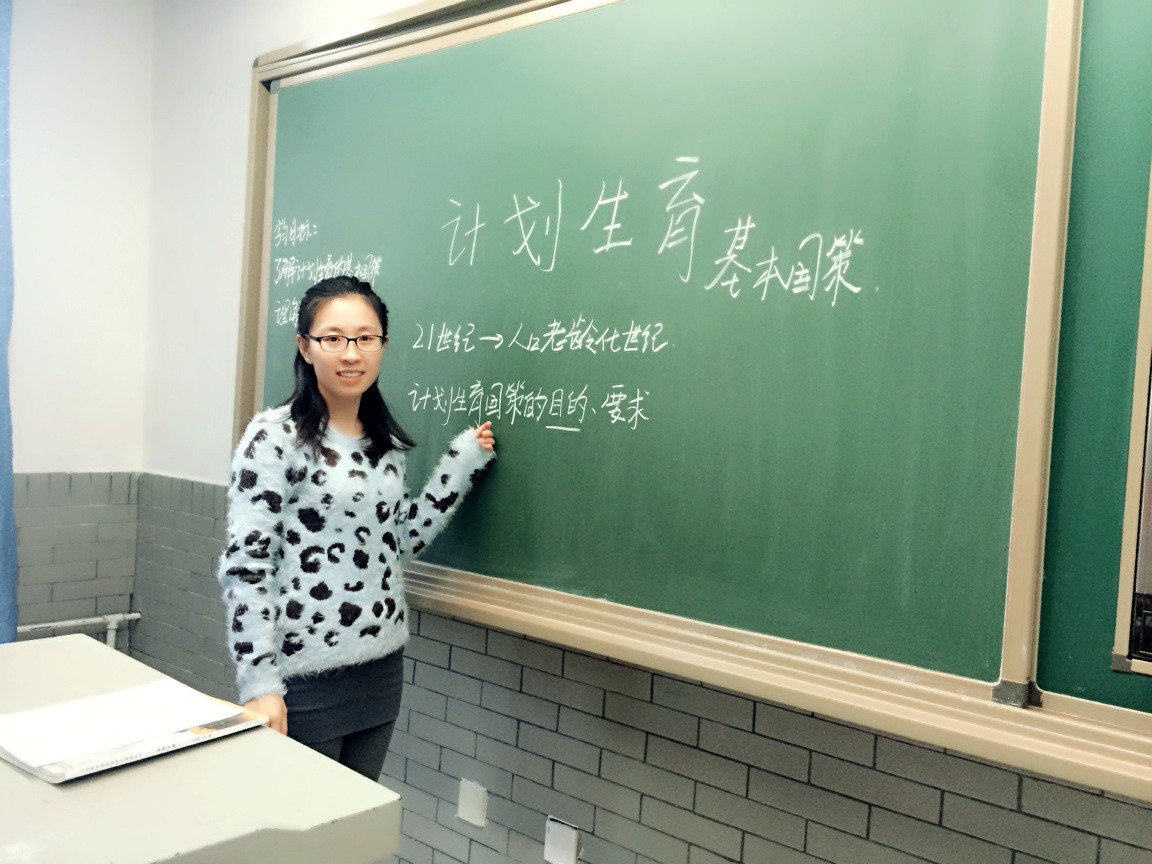 学习目标：
了解计划生育的基本国策
理解
计划生育基本国策.
21世纪→人口老龄化世纪.
计划生育国策的目的、要求